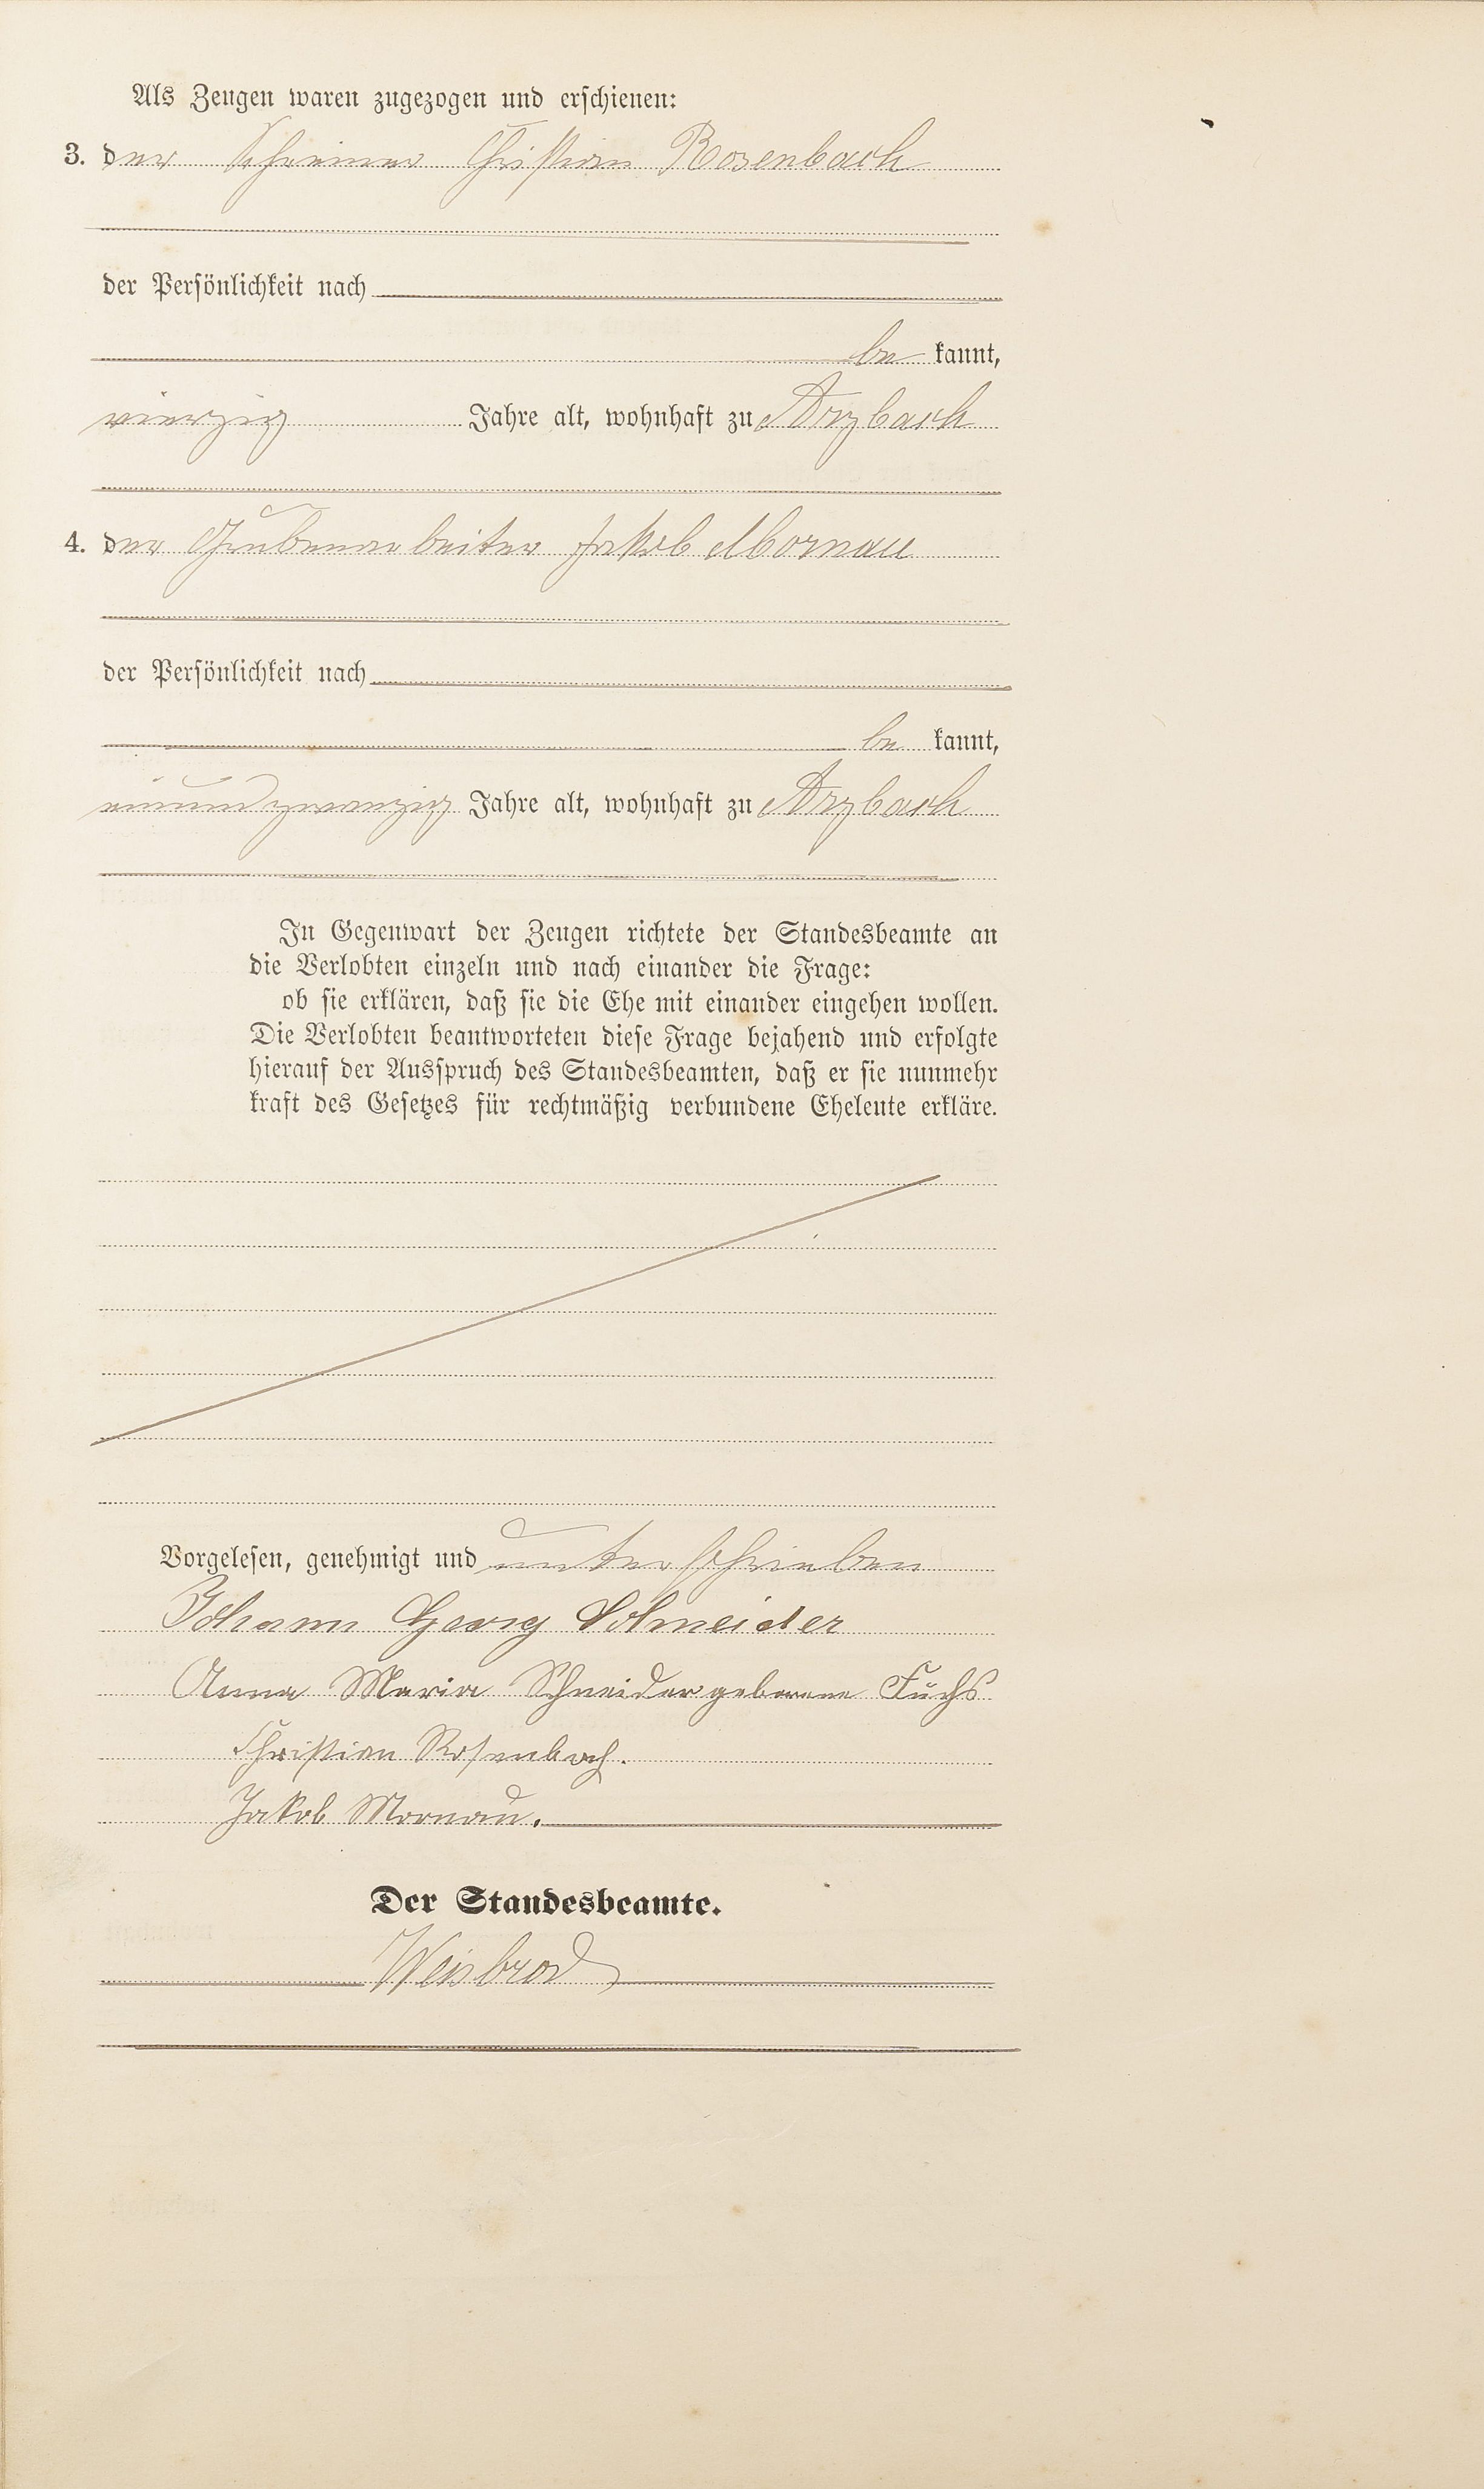 Als Zeugen waren zugezogen und erschienen:
3. der Schreiner Christian Rosenbach
der Persönlichkeit nach
be kannt,
vierzig Jahre alt, wohnhaft zu Arzbach
4. der Grubenarbeiter Jakob Mornau
der Persönlichkeit nach
be kannt,
einundzwanzig Jahre alt, wohnhaft zu Arzbach
In Gegenwart der Zeugen richtete der Standesbeamte an
die Verlobten einzeln und nach einander die Frage:
ob sie erklären, daß sie die Ehe mit einander eingehen wollen.
Die Verlobten beantworteten diese Frage bejahend und erfolgte
hierauf der Ausspruch des Standesbeamten, daß er sie nunmehr
kraft des Gesetzes für rechtmäßig verbundene Eheleute erkläre.
Vorgelesen, genehmigt und unterschrieben
Johann Georg Schneider
Anna Maria Schneider geborene Fuchs
Christian Rosenbach.
Jakob Mornau.
Der Standesbeamte.
Weisbrod